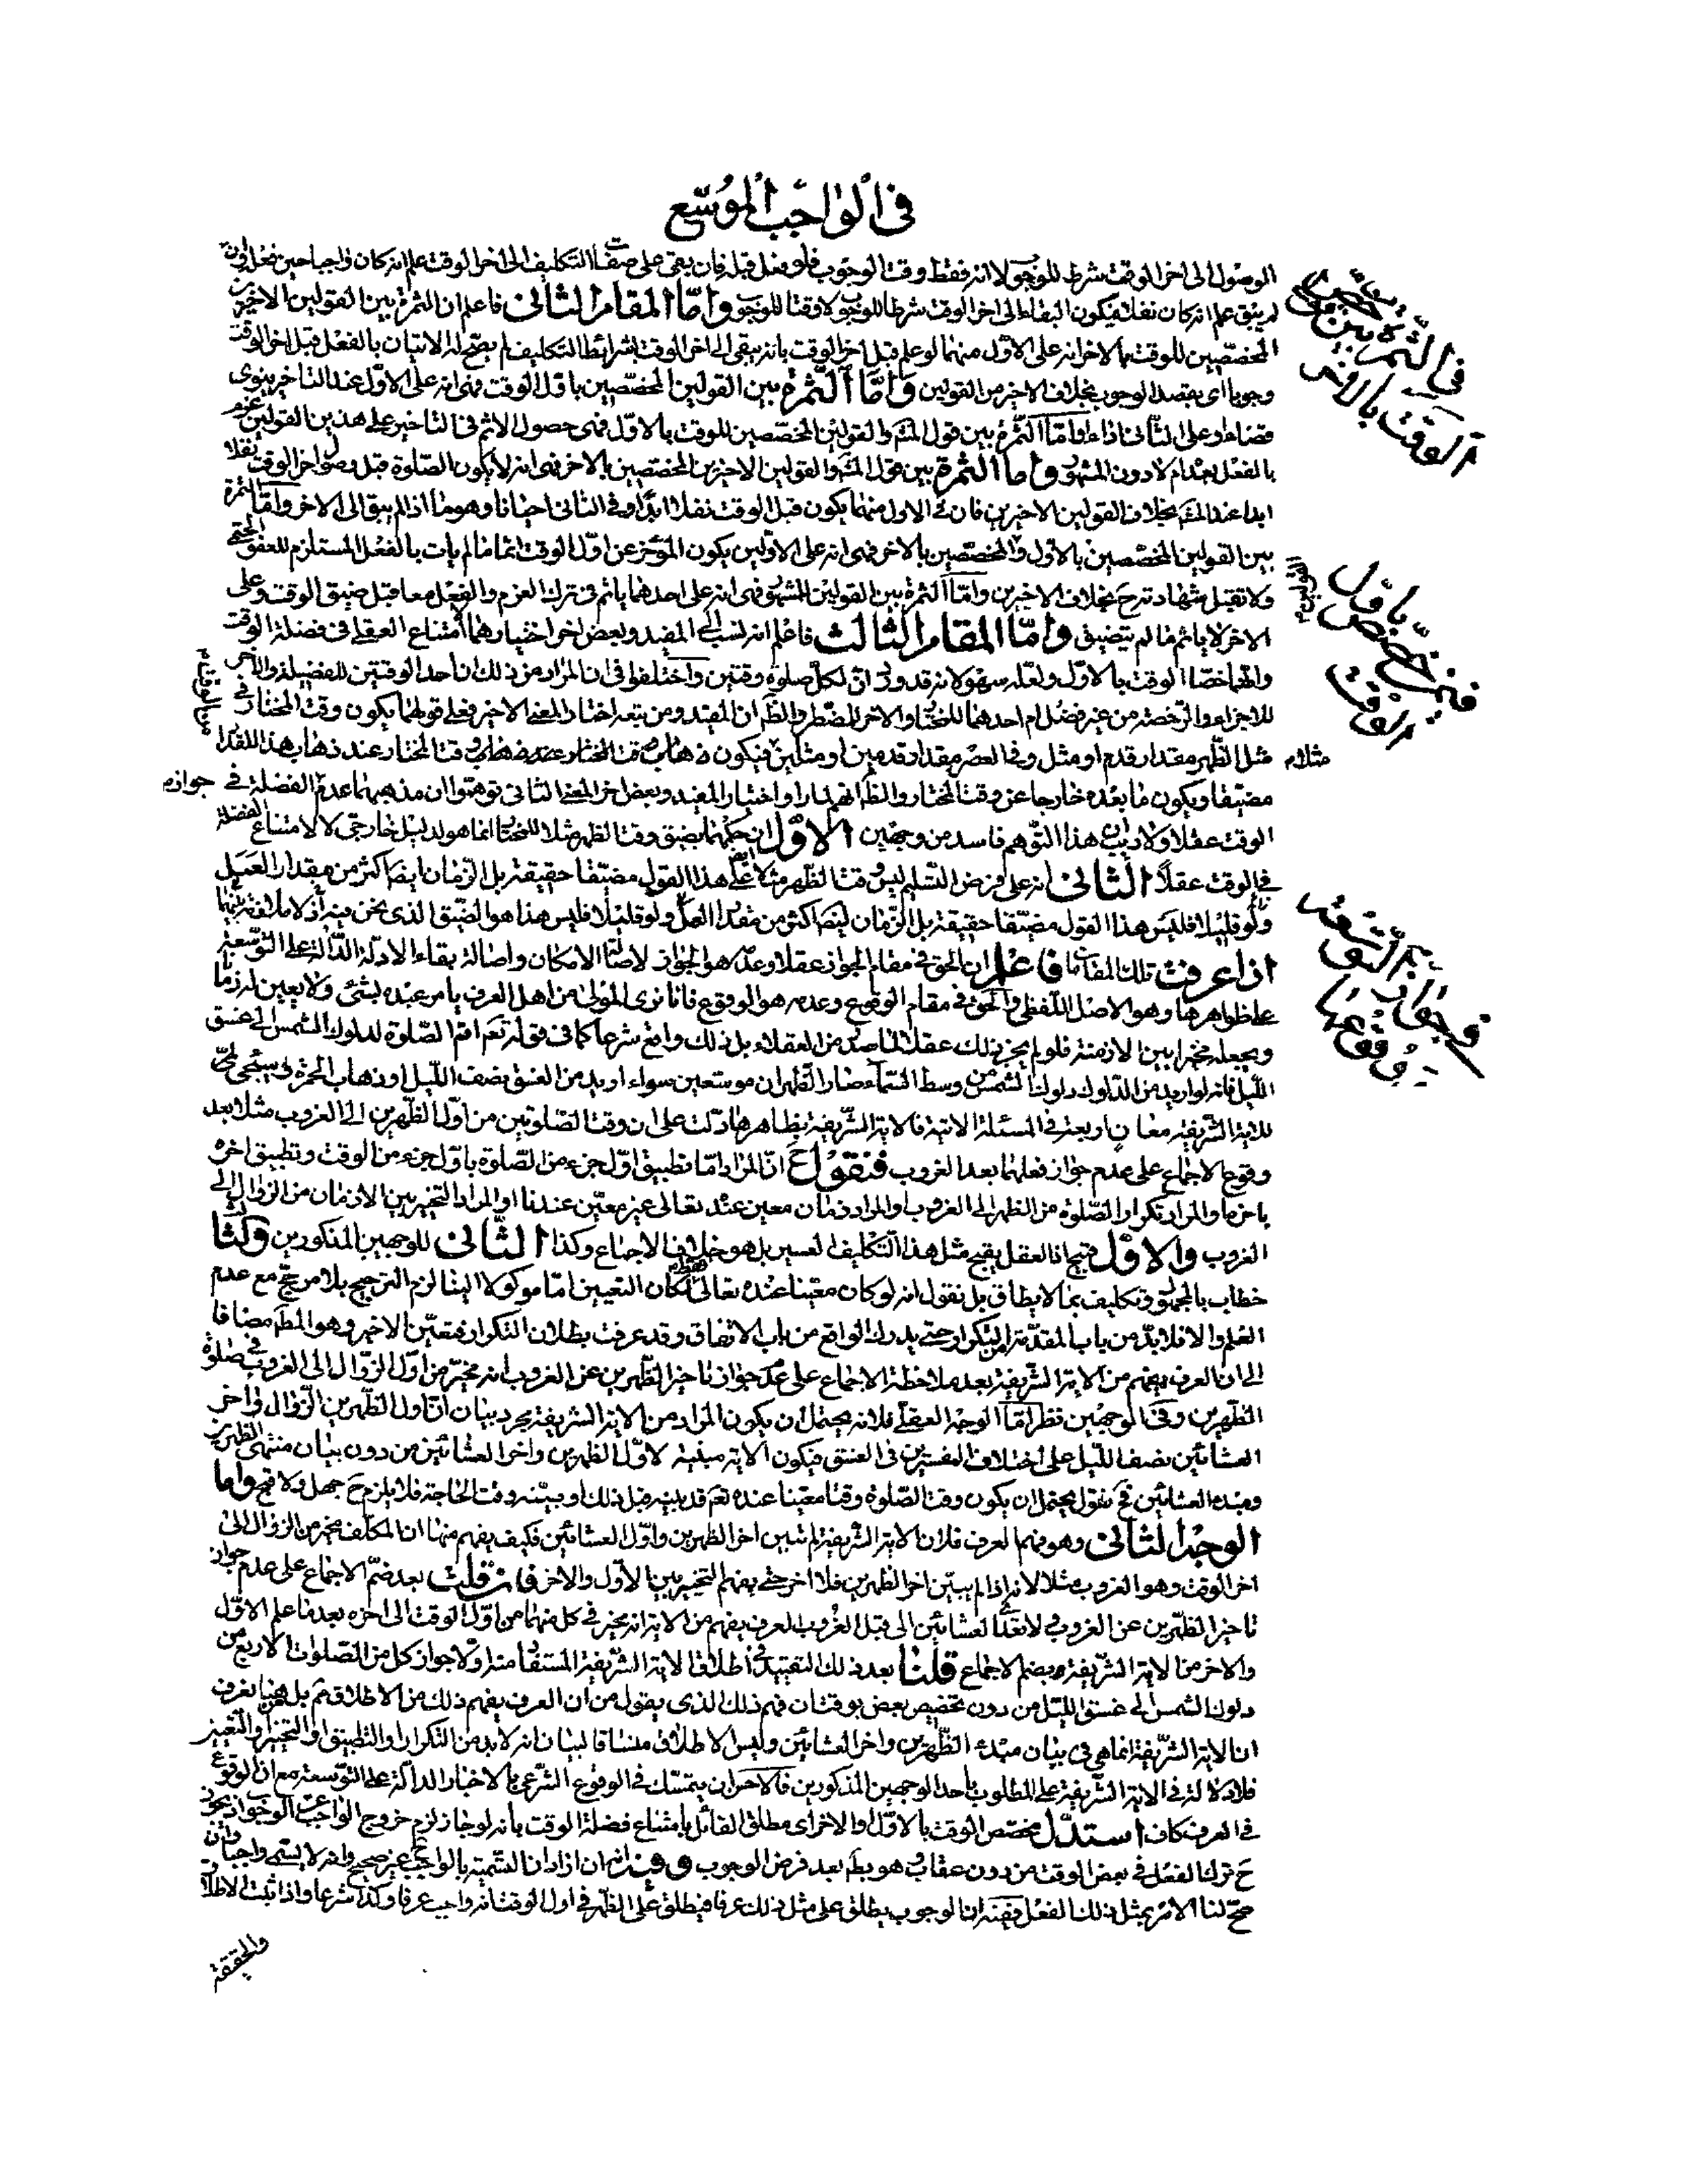 في الواجب الموسع
الوصول الى اخر الوقت شرط للوجوب لا انه فقط وقت الوجوب فلو فعل قبله فان بقى على صفات التكليف الى اخر الوقت علم انه كان واجبا حين فعل وان
لم يبق علم انه كان نفلا فيكون البقاء الى اخر الوقت شرطا للوجوب لا وقتا للوجوب واما المقام الثانى فاعلم ان الثمرة بين القولين الاخيرين
المخصصين للوقت بالاخر انه على الاول منهما لو علم قبل اخر الوقت بانه يبقى الى اخر الوقت بشرائط التكليف لم يصح له الاتيان بالفعل قبل اخر الوقت
وجوبا اى بقصد الوجوب بخلاف الاخير من القولين واما الثمرة بين القولين المخصصين باول الوقت فهى انه على الاول عند التاخير ينوى
قضاء وعلى الثانى اداء واما الثمرة بين قول المشهور والقولين المخصصين للوقت بالاول فهى حصول الاثم فى التاخير على هذين القولين
بالفعل بعد ام لا دون المشهور واما الثمرة بين قول المشهور والقولين الاخيرين المخصصين بالاخر فهى انه لا يكون الصلوة قبل وصول اخر الوقت نفلا
ابدا عند المشهور بخلاف القولين الاخيرين فان فى الاول منهما يكون قبل الوقت نفلا ابدا وفى الثانى احيانا وهو ما اذا لم يبق الى الاخر واما الثمرة
بين القولين المخصصين بالاول والمخصصين بالاخر فهى انه على الاولين يكون المؤخر عن اول الوقت اثما ما لم يات بالفعل المستلزم للعفو
ولا تقبل شهادته ح بخلاف الاخيرين واما الثمرة بين القولين المشهور فهى انه على احدهما ياثم فى ترك العزم والفعل معا قبل ضيق الوقت وعلى
الاخر لا ياثم ما لم يتضيق واما المقام الثالث فاعلم انه نسب الى المفيد وبعض اخر اختيارهما امتناع العقلى فى فضلة الوقت
وانهما خصا الوقت بالاول ولعله سهو لانه قد ورد ان لكل صلوة وقتين واختلفوا فى ان المراد من ذلك ان احد الوقتين للفضيلة والاخر
للاجزاء والرخصة من غير فضل ام احدهما للمختار والاخر للمضطر والظ ان المفيد ومن تبعه اختار المعنى الاخير فعلى قولهما يكون وقت المختار فى
مثل الظهر مقدار قدم او مثل وفى العصر مقدار قدمين او مثلين فيكون وقت المختار عند ذهاب هذا المقدار
مضيقا ويكون ما بعده خارجا عن وقت المختار والظ انهم لما راوا اختيار المفيد وبعض اخر المعنى الثانى توهموا ان مذهبهما عدم الفضلة فى
الوقت عقلا ولا ريب ان هذا التوهم فاسد من وجهين الاول ان حكمهما بضيق وقت الظهر مثلا للمختار انما هو لدليل خارجى لا لامتناع الفضلة
فى الوقت عقلا الثانى انه على فرض التسليم ليس وقت الظهر مثلا على هذا القول مضيقا حقيقة بل الزمان ايضا اكثر من مقدار العمل
ولو قليلا فليس هذا القول مضيقا حقيقة بل الزمان ايضا اكثر من مقدار العمل ولو قليلا فليس هذا هو الضيق الذى نحن فيه
اذا عرفت تلك المقامات فاعلم ان الحق فى مقام الجواز عقلا وعدمه هو الجواز لاصالة الامكان واصالة بقاء الادلة الدالة على التوسعة
على ظواهرها وهو الاصل اللفظى والحق فى مقام الوقوع وعدمه هو الوقوع فانا نرى المولى من اهل العرف يامر عبده بشئ ولا يعين له زمانا
ويجعله مخيرا بين الازمنة فلو لم يجز ذلك عقلا لما صدر من العقلاء بل ذلك واقع شرعا كما فى قوله تعم اقم الصلوة لدلوك الشمس الى غسق
الليل فانه لو اريد من الدلوك دلوك الشمس من وسط السماء صار الظهران موسعين سواء اريد من الغسق نصف الليل او ذهاب الحمرة
للاية الشريفة معان اربعة فى المسئلة الاتية فالاية الشريفة بظاهرها دلت على ان وقت الصلوتين من اول الظهرين الى الغروب مثلا بعد
وقوع الاجماع على عدم جواز فعلهما بعد الغروب فنقول ح ان المراد اما تطبيق اول جزء من الصلوة باول جزء من الوقت وتطبيق اخره
باخرها والمراد تكرار الصلوة من الظهر الى الغروب او المراد زمان معين عنده تعالى غير معين عندنا او المراد التخيير بين الازمان من الزوال الى
الغروب والاول قبيح اذ العقل يقبح مثل هذا التكليف العسير بل هو خلاف الاجماع وكذا الثانى للوجهين المذكورين وكذا الثالث
خطاب بالمجمل وتكليف بما لا يطاق بل نقول انه لو كان معينا عنده تعالى لكان التعيين اما موكولا الينا لزم الترجيح بلا مرجح مع عدم
العلم والا فلا بد من باب المقدمة من التكرار حتى يدرك الواقع من باب الاتفاق وقد عرفت بطلان التكرار فتعين الاخير وهو المط مضافا
الى ان العرف يفهم من الاية الشريفة بعد ملاحظة الاجماع على عدم جواز تاخير الظهرين عن الغروب انه مخير من اول الزوال الى الغروب فى صلوة
الظهرين وفى الوجهين نظر اما الوجه العقلى فلانه يحتمل ان يكون المراد من الاية الشريفة مجرد بيان ان اول الظهرين الزوال واخر
العشائين نصف الليل على اختلاف المفسرين فى الغسق فيكون الاية مبنية لاول الظهرين واخر العشائين من دون بيان منتهى الظهرين
ومبدء العشائين فح نقول يحتمل ان يكون وقت الصلوة وقتا معينا عنده تعم قد بينه قبل ذلك او يبينه وقت الحاجة فلا يلزم ح جهل ولا قبح واما
الوجه الثانى وهو فهم العرف فلان الاية الشريفة لم تبين اخر الظهرين واول العشائين فكيف يفهم منها ان المكلف مخير من الزوال الى
اخر الوقت وهو الغروب مثلا لانه اذا لم يبين اخر الظهرين فلا اخر حتى يفهم التخيير بين الاول والاخر فان قلت بعد ضم الاجماع على عدم جواز
تاخير الظهرين عن الغروب لا تقدم العشائين الى قبل الغروب العرف يفهم من الاية انه مخير فى كل منهما من اول الوقت الى اخره بعد ما علم الاول
والاخر من الاية الشريفة وبضم الاجماع قلنا بعد ذلك التقييد فى اطلاق الاية الشريفة المستفاد منه اولا جواز كل من الصلوات الاربع من
دلوك الشمس الى غسق الليل من دون تخصيص بعض بوقت ان فهم ذلك الذى يقول من ان العرف يفهم ذلك من الاطلاق ثم بل هنا نعرف
ان الاية الشريفة انما هى فى بيان مبدء الظهرين واخر العشائين وليس الاطلاق منساقا لبيان انه لا بد من التكرار او التطبيق او التخيير والتعيين
فلا دلالة فى الاية الشريفة على المطلوب باحد الوجهين المذكورين فالاحرى ان يتمسك فى الوقوع الشرعى بالاخبار الدالة على التوسعة مع ان الوقوع
فى العرف كاف استدل مخصص الوقت بالاول او الاخر اى مطلق القائل بامتناع فضلة الوقت بانه لو جاز لزم خروج الواجب عن الوجوب اذ يجوز
ح ترك الفعل فى بعض الوقت من دون عقاب وهو بط بعد فرض الوجوب وفيه انه ان اراد ان التسمية بالواجب ح غير صحيح وانه لا يسمى واجبا وان
صح لنا الامر بمثل ذلك الفعل ففيه ان الوجوب يطلق على مثل ذلك عرفا فيطلق على الظهر فى اول الوقت انه واجب عرفا وكذا شرعا واذا ثبت الاطلاق
والحقيقة
مثلا